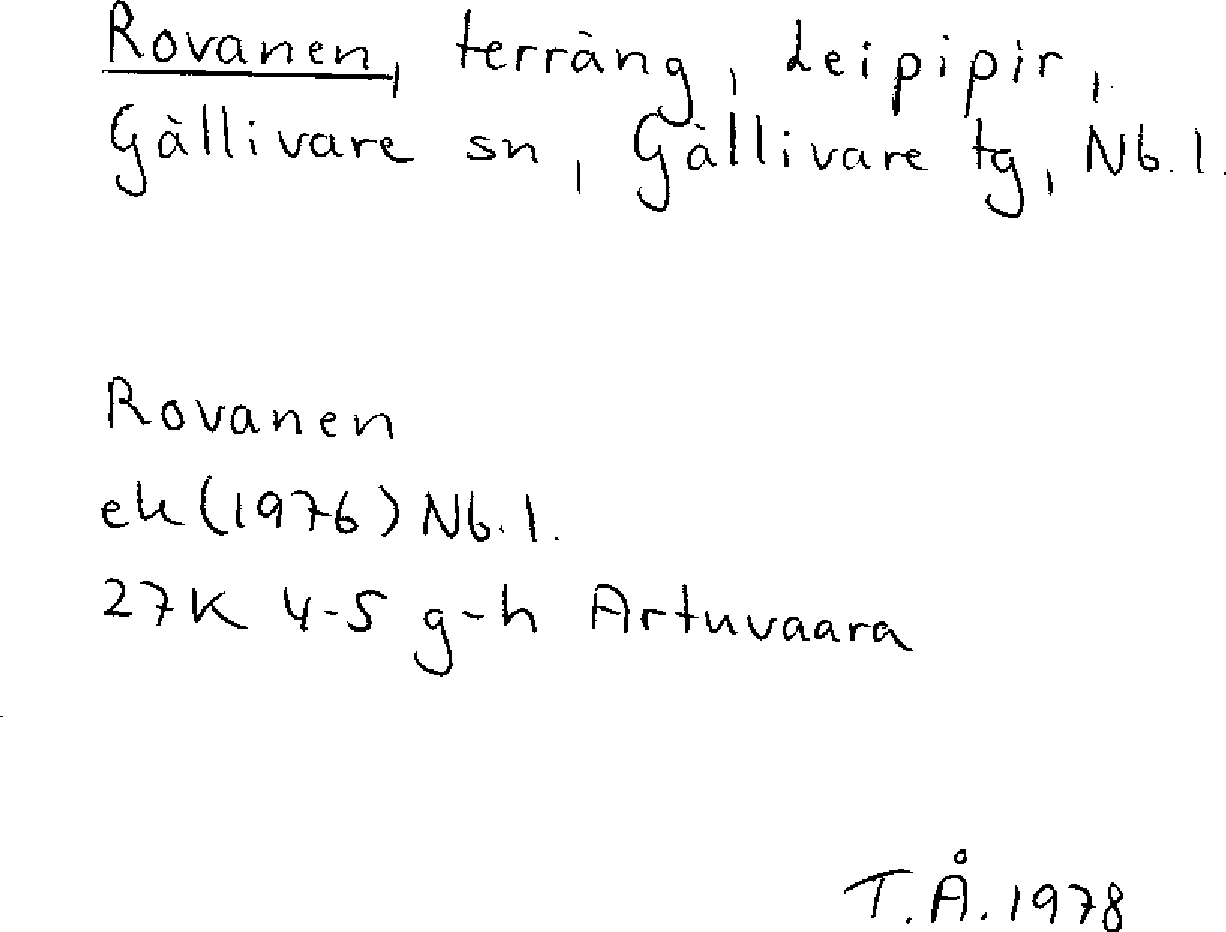 Rovanen, terräng, Leipipir,
Gällivare sn, Gällivare tg, Nb.l.
Rovanen
ek (1976) Nb.l.
27K 4-5 g-h Artuvaara
T.Å. 1978